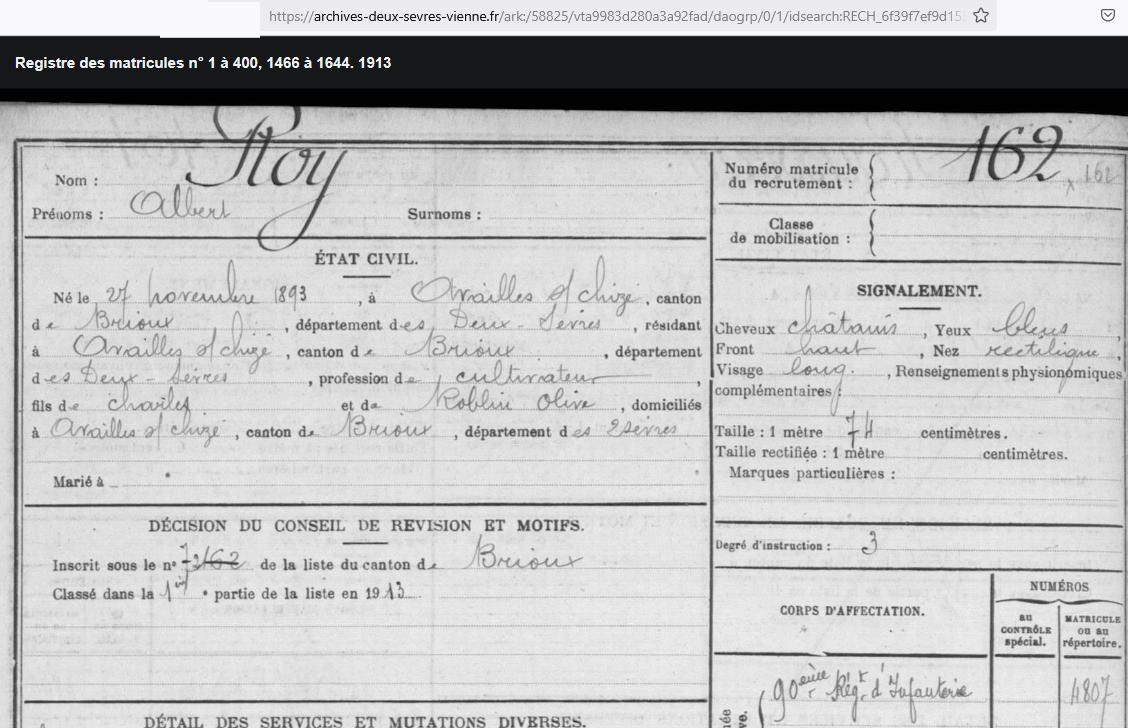 https://archives-deux-sevres-vienne.fr/ark:/58825/vta9983d280a3a92fad/daogrp/0/1/idsearch:RECH_6f39f7ef9d15
Registre des matricules n° 1 à 400, 1466 à 1644. 1913
Nom : Roy
Prénoms : Albert Surnoms :
Numéro matricule du recrutement : 162
162
Classe de mobilisation :
ÉTAT CIVIL.
Né le 27 novembre 1893, à Availles s/ chizé, canton
de Brioux, département des Deux-Sèvres, résidant
à Availles s/ chizé, canton de Brioux, département
des Deux-Sèvres, profession de cultivateur,
fils de charles et de Roblin Olive, domiciliés
à Availles s/ chizé, canton de Brioux, département des 2 sèvres
Marié à
SIGNALEMENT.
Cheveux châtains, Yeux bleus,
Front haut, Nez rectiligne,
Visage long., Renseignements physionomiques
complémentaires :
Taille : 1 mètre 74 centimètres.
Taille rectifiée : 1 mètre centimètres.
Marques particulières :
Degré d'instruction : 3
DÉCISION DU CONSEIL DE REVISION ET MOTIFS.
Inscrit sous le n° de la liste du canton de Brioux
Classé dans la 1ère partie de la liste en 1913.
CORPS D'AFFECTATION.
NUMÉROS
au CONTRÔLE spécial.
MATRICULE ou au répertoire.
90ème Régt d'Infanterie 4807
DÉTAIL DES SERVICES ET MUTATIONS DIVERSES.